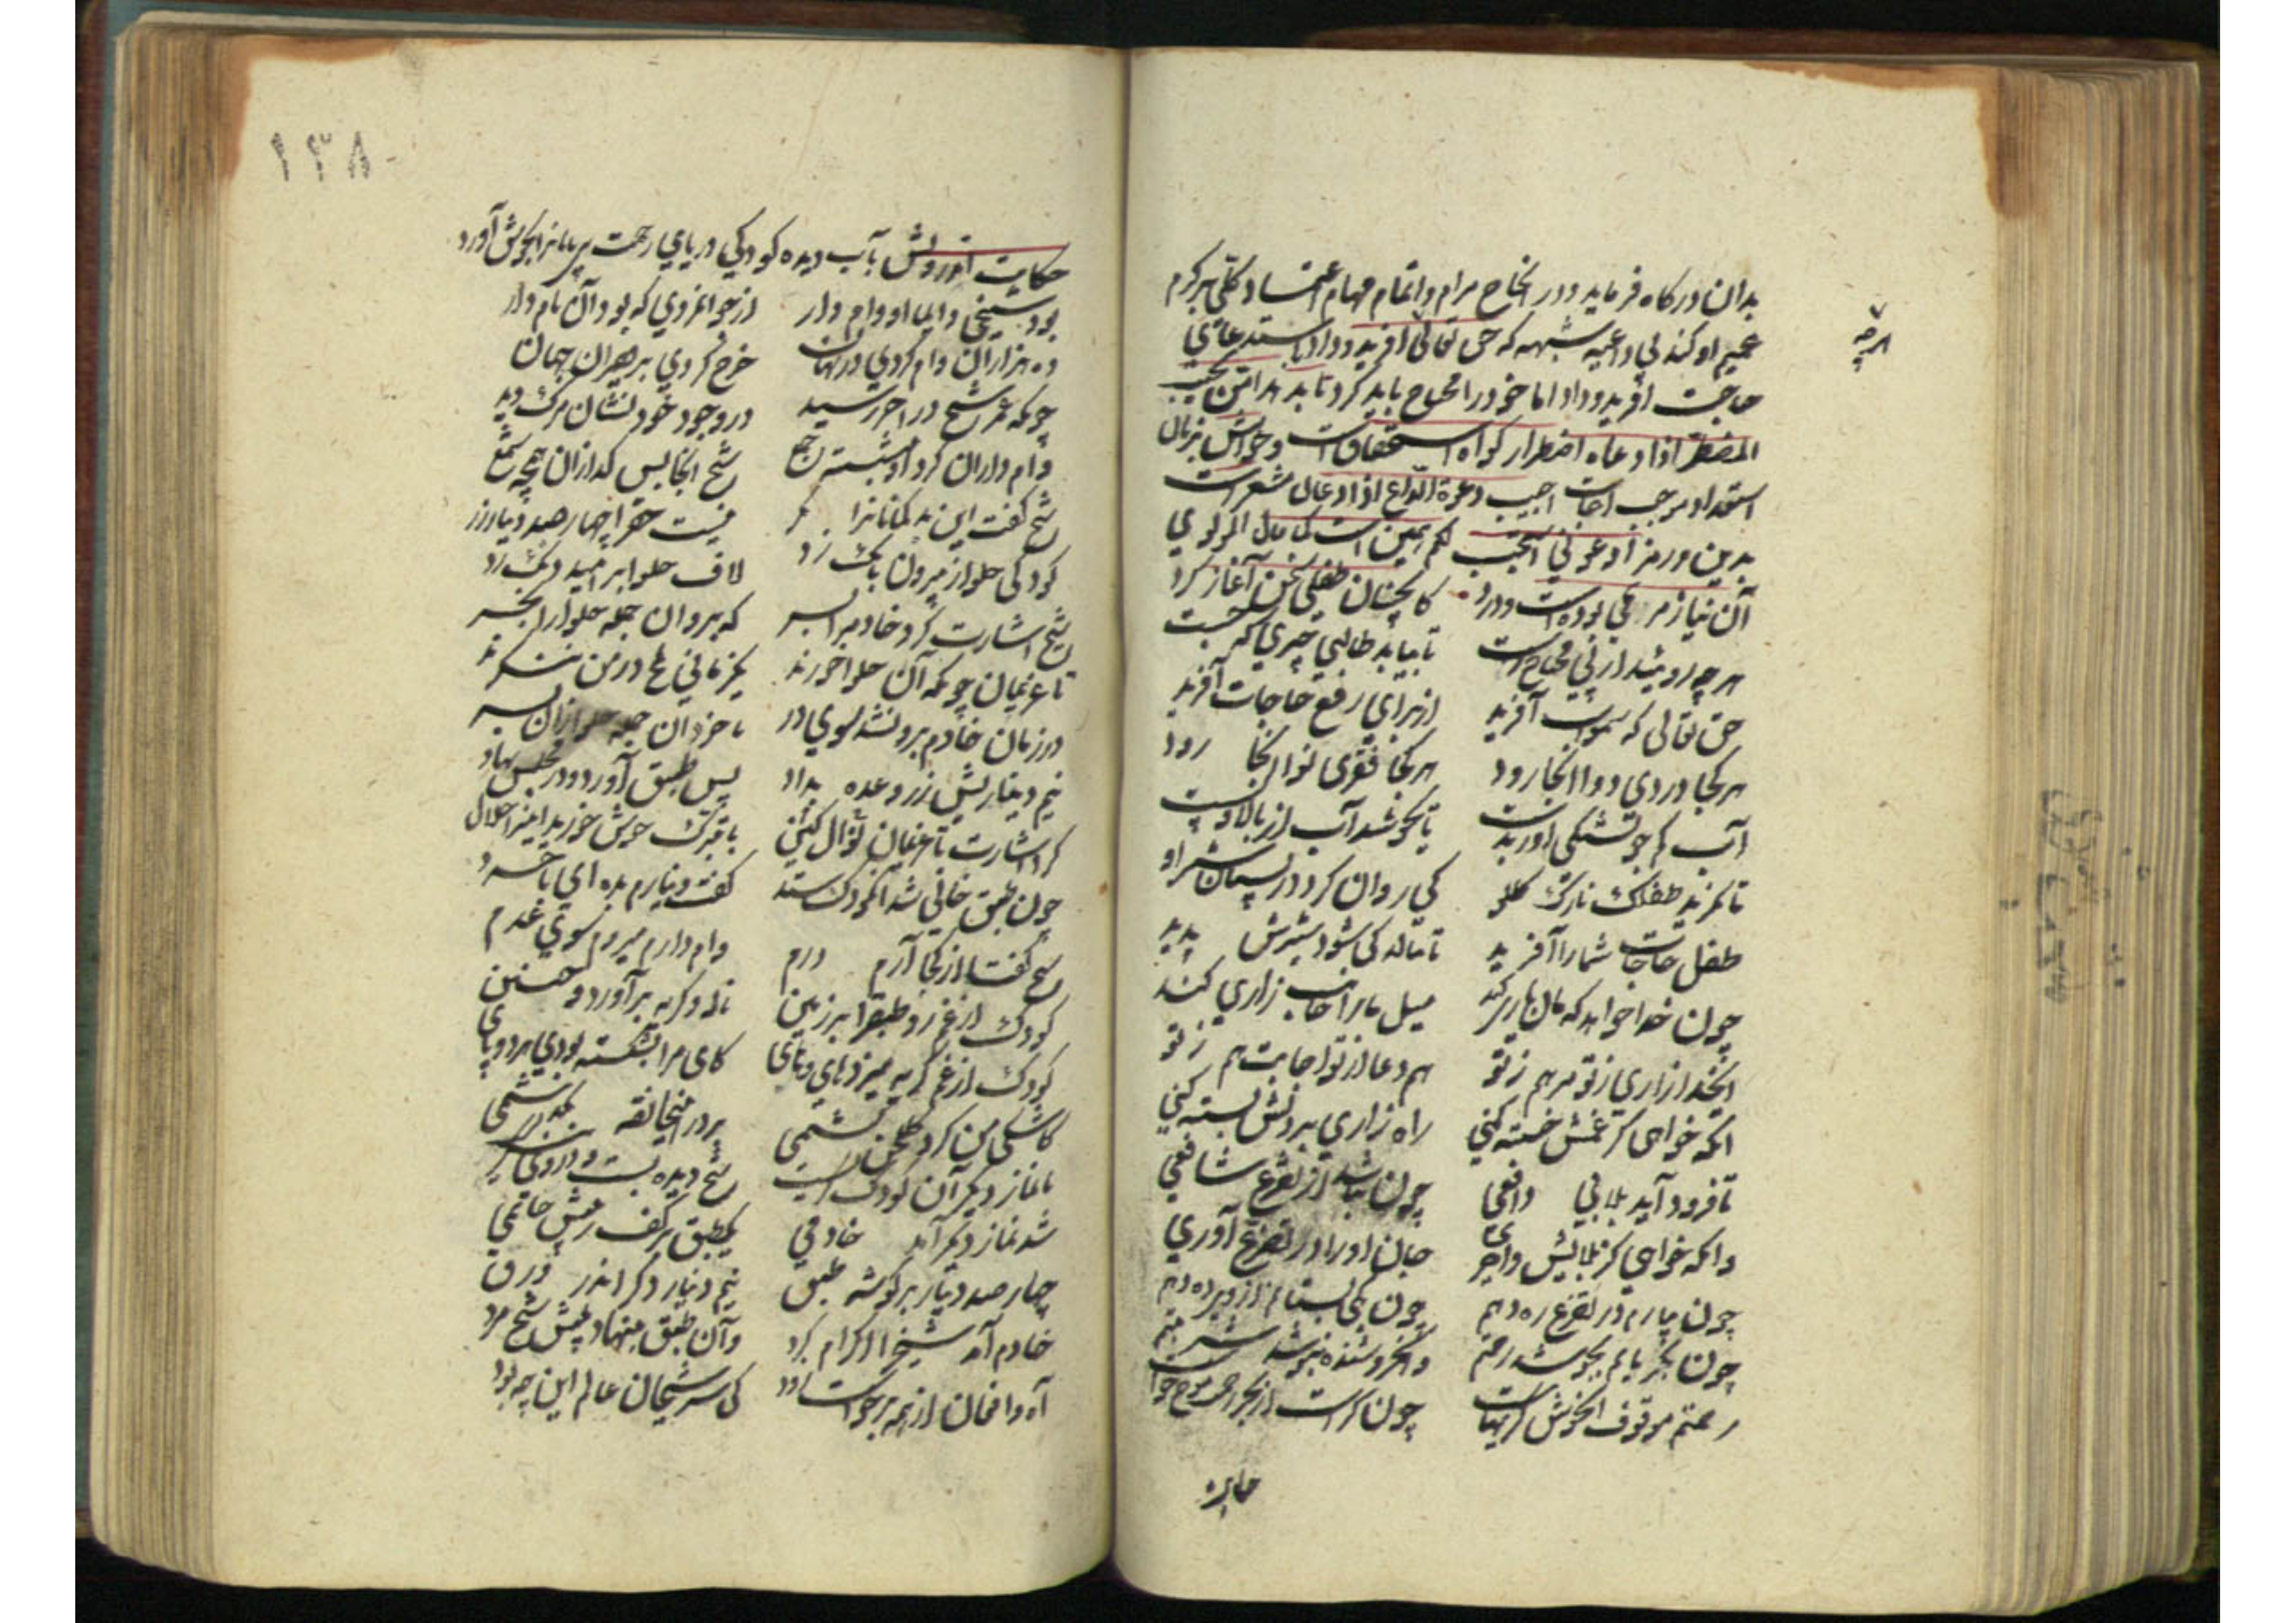 بدان درکاه فرماید و در انجاح مرام و اتمام مهام اعتماد کلی بر کرم
عمیم او کند بی داعیه شبهه که حق تعالی افرید و داد استدعای
هرچه
حاجت افرید و داد اما خود را محتاج باید کرد تا بد امن یجیب
المضطر اذا دعاه اضطرار کواه استحقاقست و خواهش بزبان
استعداد موجب اجابت اجیب دعوة الداع اذا دعان مشعر است
بدین و رمز ادعونی استجب لکم همین است کما قال المولوی
آن نیاز مریمی بوده است و درد کانچنان طفلی سخن آغاز کرد
هرچه روئید از پی محتاج رست تا بیابد طالبی چیزی که جست
حق تعالی که سموات آفرید از برای رفع حاجات آفرید
هر کجا دردی دوا انجا رود هر کجا فقری نوا انجا رود
آب کم جو تشنکی اور بدست تا بجوشد آب از بالا و پست
تا نکرید طفلک نازک کلو کی روان کردد ز پستان شیر او
طفل حاجات شما را آفرید تا بناله کی شود شیرش پدید
چون خدا خواهد که مان یاری کند میل ما را جانب زاری کند
ایخدا زاری ز تو مرهم ز تو هم دعا از تو اجابت هم ز تو
انکه خواهی کز غمش خسته کنی راه زاری بر دلش بسته کنی
تا فرود آید بلا بی دافعی چون نباشد از تضرع شافعی
وانکه خواهی کز بلایش واخری جان او را در تضرع آوری
چون بیارم در تضرع ره دهم چون
چون بگریانم بجوشد رحمتم وان خروشنده بنوشد نعمتم
رحمتم موقوف آنخوش کریهاست چون کریست از بحر رحمت موج خاست
۱۳۸
حکایت اندرویش بآب دیده کودکی دریای رحمت بی پایانرا بجوش آورد
بود شیخی دایما او وام دار از جوانمردی که بود آن نام دار
ده هزاران وام کردی در نهان خرج کردی بر فقیران جهان
چونکه عمر شیخ در اخر رسید در وجود خود نشان مرک دید
وام داران کرد او بنشسته جمع شیخ انجا بس کدازان همچو شمع
شیخ کفت این بدکمانانرا نکر نیست حقرا چهار صد دینار زر
کودکی حلوا ز بیرون بانک زد لاف حلوا بر امید دانک زد
شیخ اشارت کرد خادم را بسر که برو آن جمله حلوا را بخر
تا غریمان چونکه آن حلوا خورند یکزمانی تلخ در من ننکرند
در زمان خادم برون شد سوی در تا خرد آن جمله حلوا زان پسر
نیم دینارش زر وعده بداد پس طبق آورد و در مجلس نهاد
کرد اشارت با غریمان کین نوال با تبرک خوش خورید اینرا حلال
چون طبق خالی شد آنکودک ستد کفت دینارم بده ای با خرد
شیخ کفتا از کجا آرم درم وام دارم میروم سوی عدم
کودک از غم زد طبقرا بر زمین ناله و کریه برآورد و حنین
کودک از غم کریه میزد های و های کای مرا بشکسته بودی هر دو پای
کاشکی من کرد کلخن کشتمی بر در اینخانقه نکذشتمی
تا نماز دیکر آن کودک کریست شیخ دیده بست و
شد نماز دیکر آمد خادمی یکطبق بر کف ز پیش حاتمی
چار صد دینار بر کوشه طبق نیم دینار دکر اندر ورق
خادم آمد شیخ را اکرام کرد وآن طبق بنهاد پیش شیخ مرد
آه و افغان از همه برخواست زود کای سر شیخان عالم این چه بود